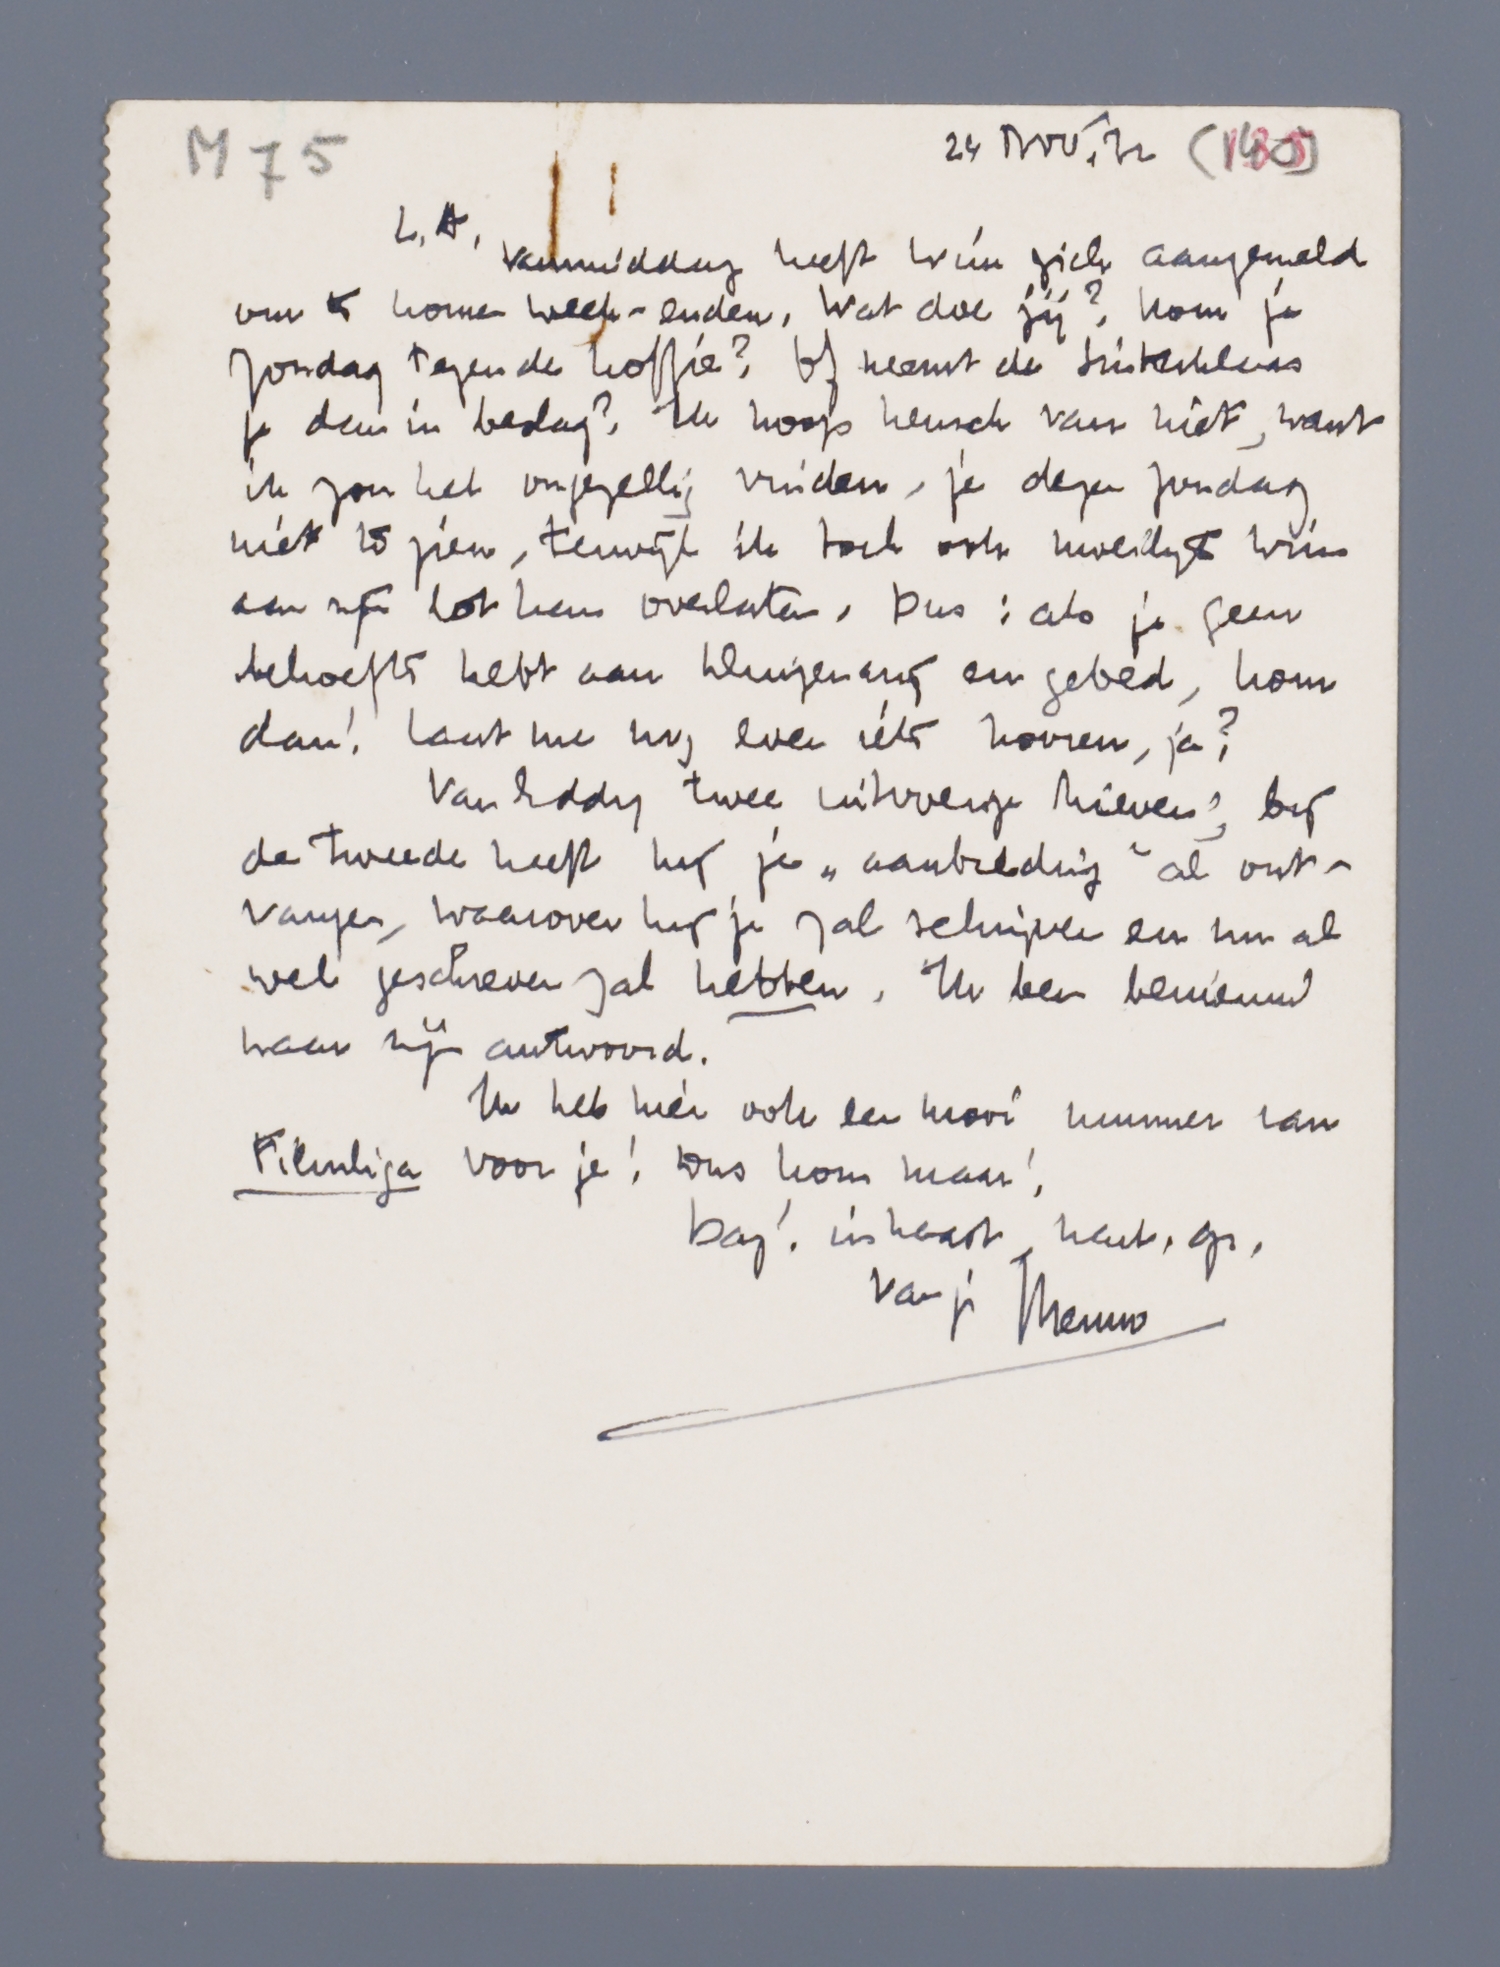 M 75
24 Nov. 32
L. A.
Vanmiddag heeft Wim zich aangemeld
om te komen week-enden. Wat doe jij? Kom je
Zondag tegen de koffie? Of neemt de Sinterklaas
je dan in beslag? Ik hoop heusch van niet, want
ik zou het ongezellig vinden, je deze Zondag
niet te zien, terwijl ik toch ook moeilijk Wim
aan zijn lot kan overlaten. Dus: als je geen
behoefte hebt aan en gebed, kom
dan! Laat me nog even iets hooren, ja?
Van Eddy twee uitvoerige brieven; bij
de tweede heeft hij je „aanbieding" al ont-
vangen, waarover hij je zal schrijven en nu al
wel geschreven zal hebben. Ik ben benieuwd
naar zijn antwoord.
Ik heb hier ook een mooi nummer van
Filmliga voor je! Dus kom maar!
Dag! in haast, hart. gr.
van je Menno